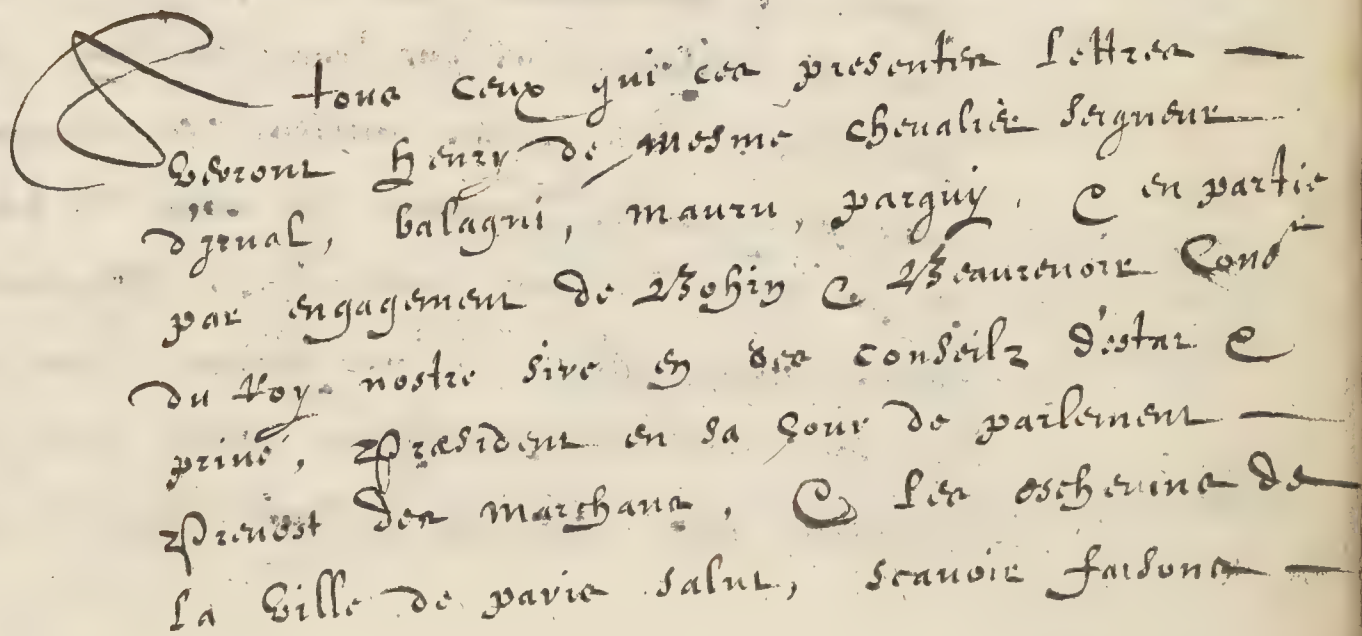 A tous ceux qui ces presentes lettres —
verront Henry de mesme chevalier seigneur
d'jrual, balagni, mauru, parguy, & en partie
par engagement de Bohin & Beaurevoir Cons.r
du Roy nostre sire en ses conseilz d'estat &
priué, Præsident en sa cour de parlement —
Preuost des marchans, & les escheuins de
la ville de paris salut, scauoir faisons —